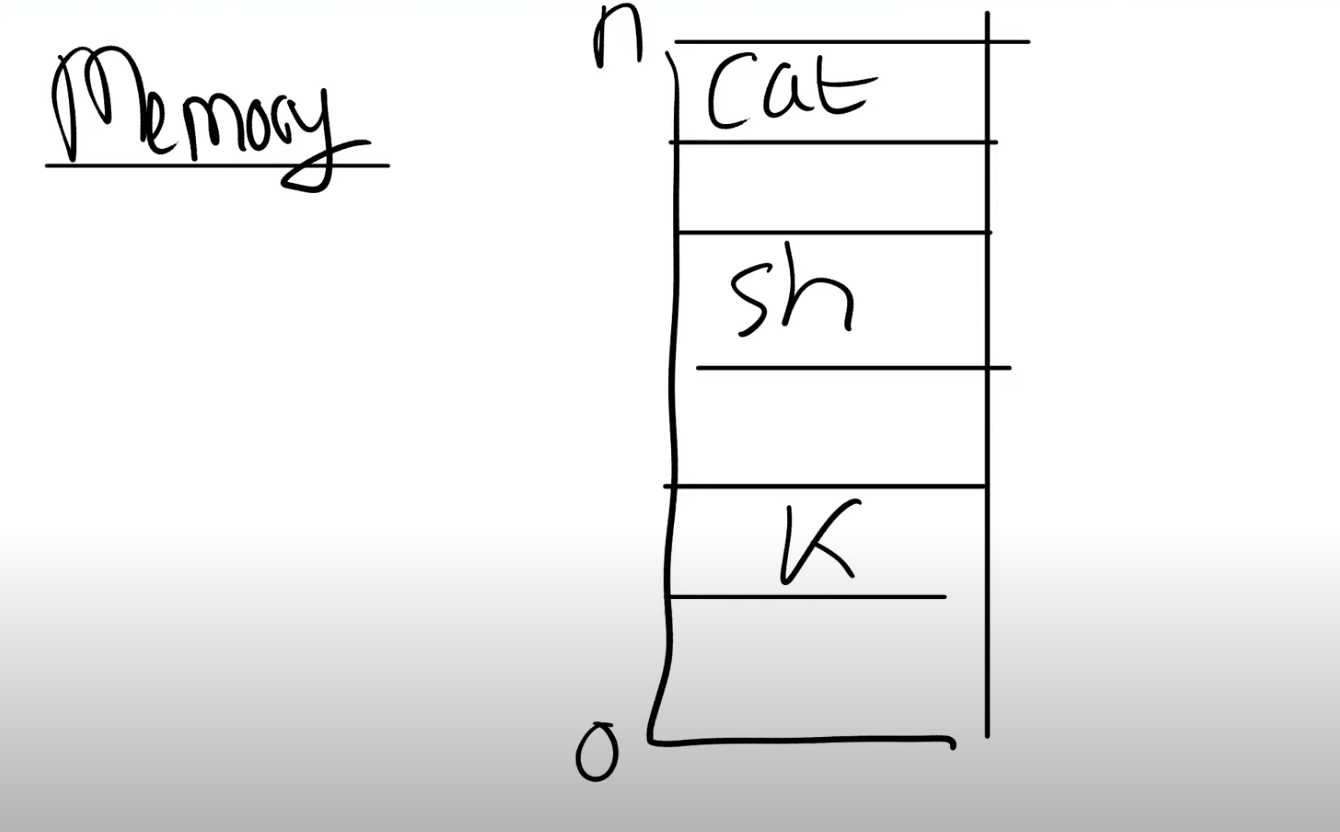 Memory
n
cat
sh
K
0